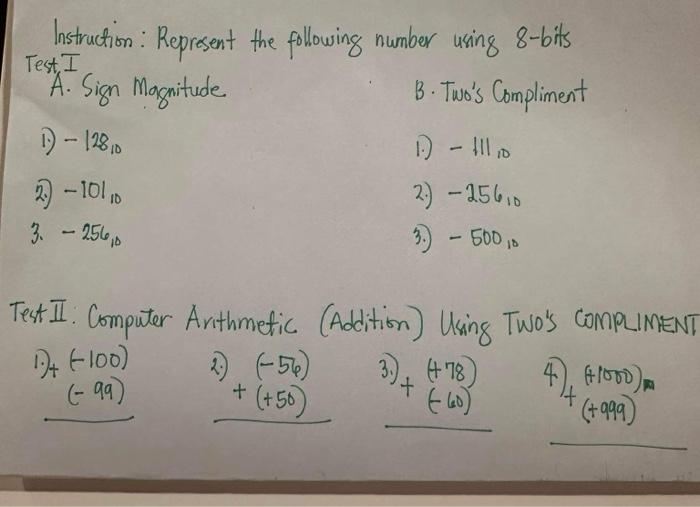 Instruction: Represent the following number using 8-bits
Test I
A. Sign Magnitude
1.) -128₁₀
2.) -101₁₀
3. -256₁₀
B. Two's Compliment
1.) -111₁₀
2.) -256₁₀
3.) -500₁₀
Test II: Computer Arithmetic (Addition) Using TWO'S COMPLIMENT
1.) + (-100)
(-99)
2.) (-56)
+ (+50)
3.) + (+78)
(-60)
4.) + (+1000)
(+999)